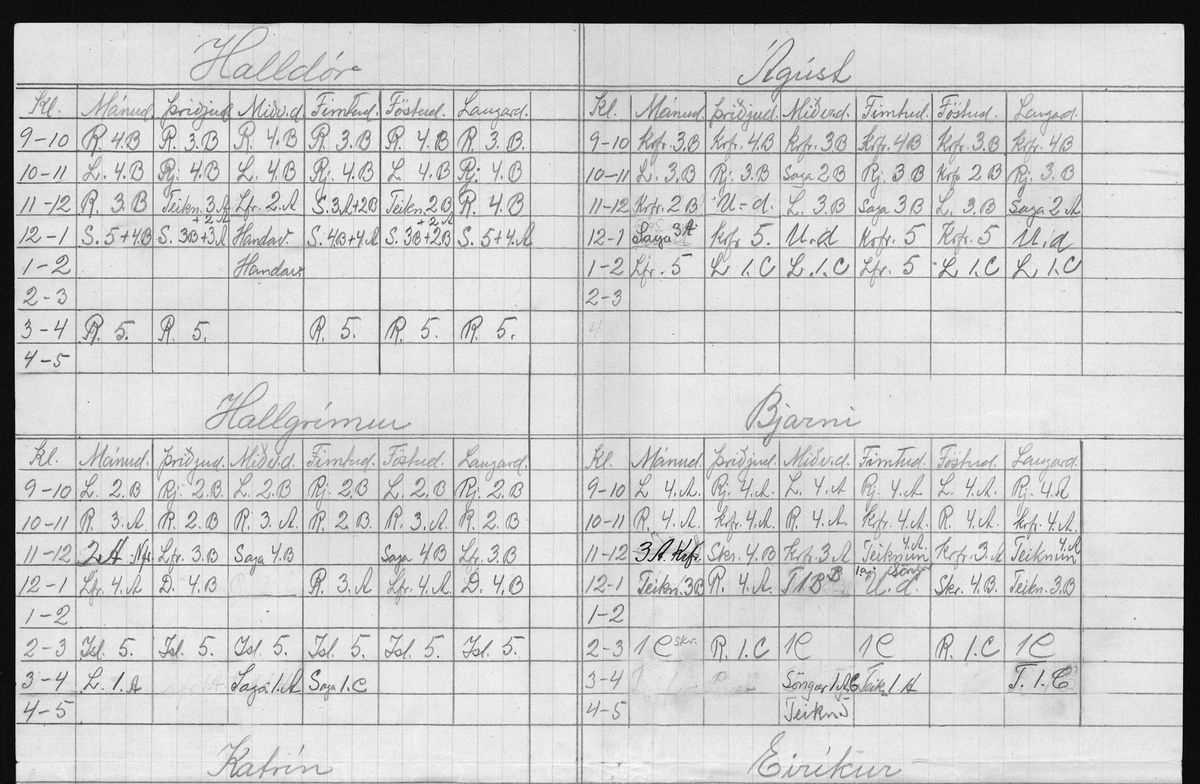 Halldór
Kl. Mánud. Þriðjud. Miðv.d. Fimtud. Föstud. Laugard.
9-10 R. 4.B R. 3.B R. 4.B R. 3.B R. 4.B R. 3.B.
10-11 L. 4.B Rj. 4.B L. 4.B Rj. 4.B L. 4.B Rj. 4.B
11-12 R. 3.B Teikn. 3.A + 2.A Lfr. 2.A S. 3.A+2B Teikn. 2.B + 2.A R. 4.B
12-1 S. 5+4.B S. 3B+3A Handav. S. 4B+4.A S. 3B+2B S. 5+4.A
1-2 Handav.
2-3
3-4 R. 5. R. 5. R. 5. R. 5. R. 5.
4-5
Ágúst
Kl. Mánud. Þriðjud. Miðv.d. Fimtud. Föstud. Laugard.
9-10 Krfr. 3.B Krfr. 4.B Krfr. 3B Krfr. 4B Krfr. 3.B Krfr. 4B
10-11 L. 3.B Rj. 3.B Saga 2B Rj. 3B Krfr. 2B Rj. 3.B
11-12 Krfr. 2B U-d. L. 3.B Saga 3B L. 3.B Saga 2A
12-1 Saga 3A Krfr. 5. U.d Krfr. 5 Krfr. 5 U.d
1-2 Lfr. 5 L 1.C L. 1.C Lfr. 5 L 1.C L 1.C
2-3
Hallgrímur
Kl. Mánud. Þriðjud. Miðv.d. Fimtud. Föstud. Laugard.
9-10 L. 2.B Rj. 2.B. L. 2.B Rj. 2.B L. 2.B Rj. 2.B
10-11 R. 3.A R. 2.B R. 3.A. R. 2.B. R. 3.A R. 2.B
11-12 2A Lfr. 3.B Saga 4.B Saga 4B Lfr. 3.B
12-1 Lfr. 4.A D. 4.B R. 3.A Lfr. 4.A D. 4.B
1-2
2-3 Ísl. 5. Ísl. 5. Ísl. 5. Ísl. 5. Ísl. 5. Ísl. 5.
3-4 L. 1.A Saga 1.A Saga 1.C
4-5
Bjarni
Kl. Mánud. Þriðjud. Miðv.d. Fimtud. Föstud. Laugard.
9-10 L 4.A. Rj. 4.A L. 4.A Rj. 4.A L. 4.A Rj. 4.A
10-11 R. 4.A. Krfr. 4.A R. 4.A Krfr. 4.A R. 4.A. Krfr. 4.A
11-12 3A Krfr. Skr. 4.B Krfr. 3.A Teiknun 4.A Krfr. 3.A Teiknun 4.A
12-1 Teikn. 3B R. 4.A U.d. Skr. 4.B. Teikn. 3.B
1-2
2-3 1C skr. R. 1.C 1C 1C R. 1.C 1C
3-4 Söngur 1.A Teikn 1A T. 1.C
4-5 Teikn
Katrín
Eiríkur